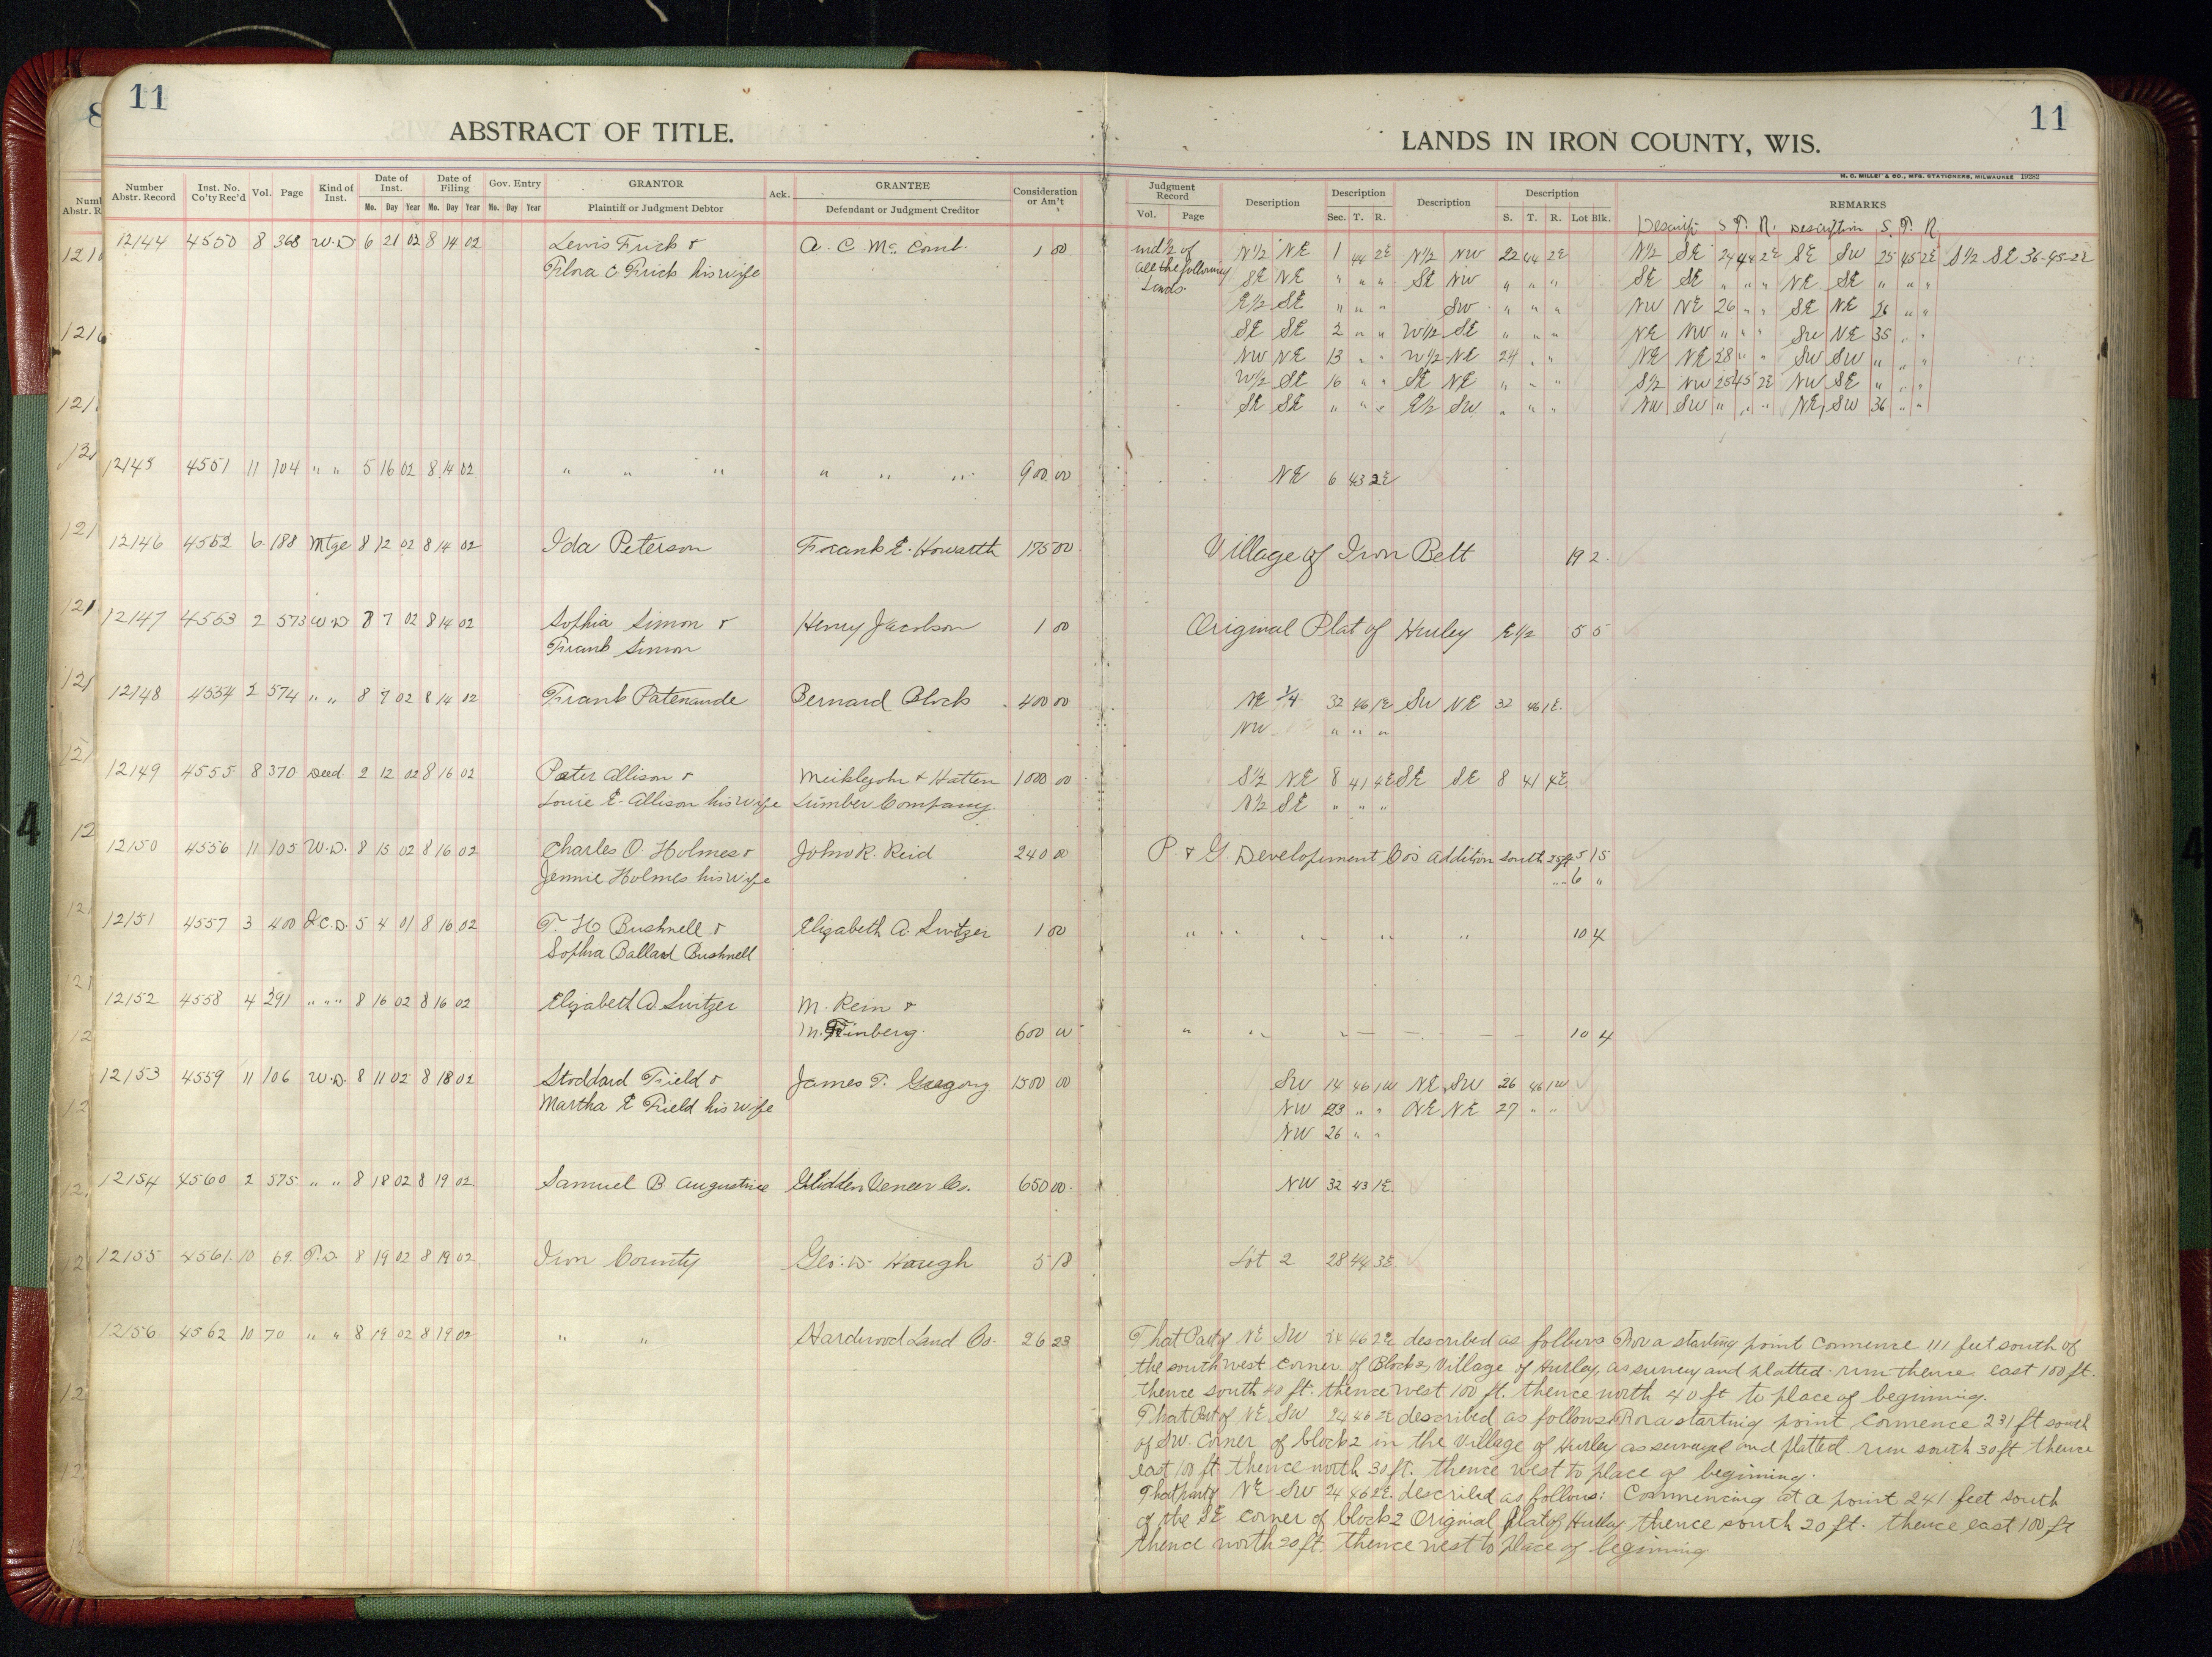 11
ABSTRACT OF TITLE.
Number Abstr. Record | Inst. No. Co'ty Rec'd | Vol. | Page | Kind of Inst. | Date of Inst. Mo. Day Year | Date of Filing Mo. Day Year | Gov. Entry Mo. Day Year | GRANTOR Plaintiff or Judgment Debtor | Ack. | GRANTEE Defendant or Judgment Creditor | Consideration or Am't
12144 4550 8 368 W.D 6 21 02 8 14 02 Lewis Frick & A. C. Mc Comb 1 00
Flora C. Frick his wife
12145 4551 11 104 " " 5 16 02 8 14 02 " " " " " " 900 00
12146 4552 6 188 Mtge 8 12 02 8 14 02 Ida Peterson Frank E. Howarth 175 00
12147 4553 2 573 W.D 8 7 02 8 14 02 Sophia Simon & Henry Jacobson 1 00
Frank Simon
12148 4554 2 574 " " 8 7 02 8 14 02 Frank Patenaude Bernard Block 400 00
12149 4555 8 370 Deed 2 12 02 8 16 02 Peter Allison & Meiklejohn & Hatten 1000 00
Louie E. Allison his wife Lumber Company.
12150 4556 11 105 W.D. 8 15 02 8 16 02 Charles O. Holmes & John R. Reid 240 00
Jennie Holmes his wife
12151 4557 3 400 Q.C.D. 5 4 01 8 16 02 T. H. Bushnell & Elizabeth A. Switzer 1 00
Sophia Ballard Bushnell
12152 4558 4 291 " " " 8 16 02 8 16 02 Elizabeth A. Switzer M. Rein &
M. Finberg. 600 00
12153 4559 11 106 W.D. 8 11 02 8 18 02 Stoddard Field & James T. Gregory 1500 00
Martha E Field his wife
12154 4560 2 575 " " 8 18 02 8 19 02 Samuel B Augustine Glidden Veneer Co. 650 00
12155 4561 10 69 T.D. 8 19 02 8 19 02 Iron County Geo. W. Haugh 5 18
12156 4562 10 70 " " 8 19 02 8 19 02 " " Hardwood Land Co. 26 23
11
LANDS IN IRON COUNTY, WIS.
H. C. MILLER CO., MFG. STATIONERS, MILWAUKEE 19282
Judgment Record Vol. Page | Description | Description Sec. T. R. | Description | Description S. T. R. Lot Blk. | REMARKS
Descrip S T. R. Description S. T. R.
und ½ of N½ NE 1 44 2E N½ NW 22 44 2E N½ SE 24 44 2E SE SW 25 45 2E S½ SE 36-45-2E
all the following SE NE " " " SE NW " " " SE SE " " " NE SE " " "
Lands. E½ SE " " " SW " " " NW NE 26 " " SE NE 26 " "
SE SE 2 " " W½ SE " " " NE NW " " " SW NE 35 " "
NW NE 13 " " W½ NE 24 " " NE NE 28 " " SW SW " " "
W½ SE 16 " " SE NE " " " S½ NW 25 45 2E NW SE " " "
SE SE " " " E½ SW " " " NW SW " " " NE SW 36 " "
NE 6 43 2E
Village of Iron Belt 19 2
Original Plat of Hurley E½ 5 5
NE ¼ 32 46 1E SW NE 32 46 1E.
NW " " "
S½ NE 8 41 4E SE SE 8 41 4E
N½ SE " " "
P. & G. Development Co's Addition South 25 ft 5 15
" 6 "
" " " " " 10 4
" " " 10 4
SW 14 46 1W NE SW 26 46 1W
NW 23 " " NE NE 27 " "
NW 26 " "
NW 32 43 1E.
Lot 2 28 44 3E
That Part of NE SW 24 46 2E described as follows For a starting point commence 111 feet south of
the southwest corner of Block 2, Village of Hurley, as survey and platted. run thence east 100 ft.
thence south 40 ft. thence west 100 ft. thence north 40 ft to place of beginning.
That Part of NE SW 24 46 2E described as follows For a starting point commence 231 ft south
of SW. corner of block 2 in the Village of Hurley as surveyed and platted run south 30 ft thence
east 100 ft thence north 30 ft. thence west to place of beginning.
That part of NE SW 24 46 2E. described as follows: Commencing at a point 241 feet south
of the SE corner of block 2 Original plat of Hurley thence south 20 ft. thence east 100 ft
thence north 20 ft. thence west to place of beginning